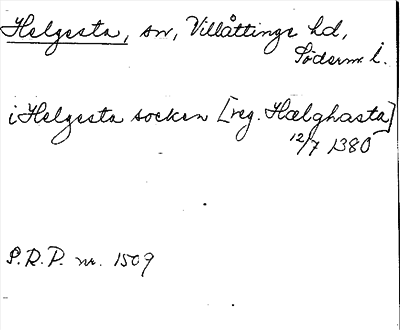 Helgesta, sn, Villåttinge hd,
Söderm. l.
i Helgesta socken [reg. Hælghasta]
12/7 1380
S.R.P. nr. 1509